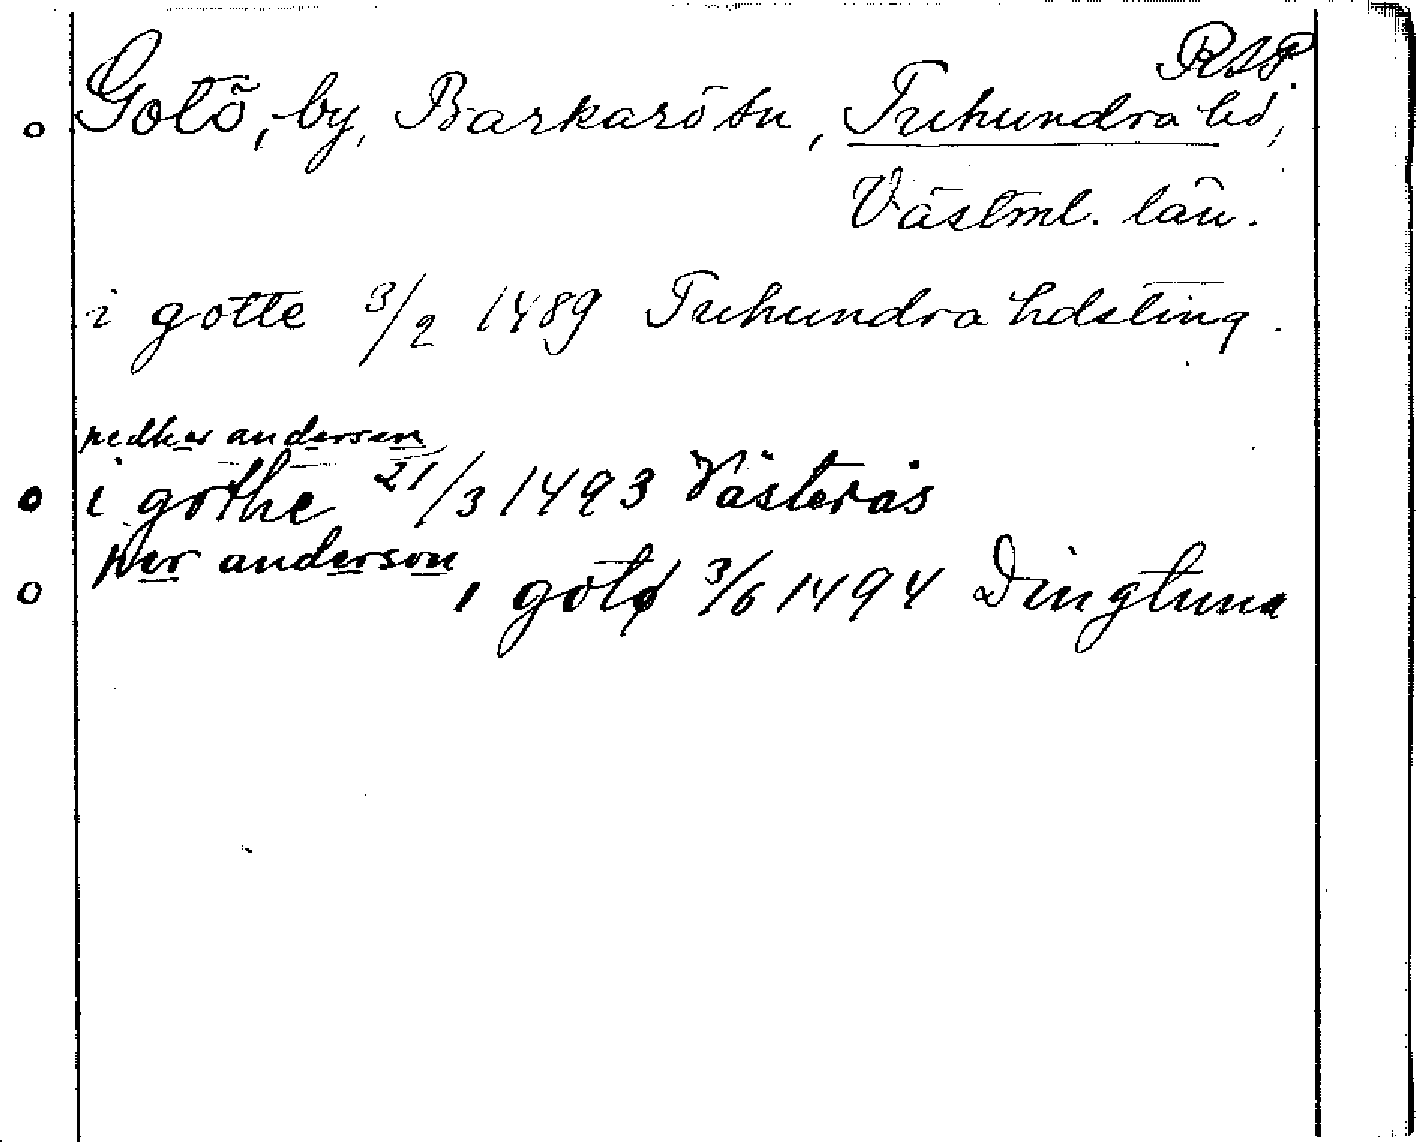 RAP
Götö, by, Barkarö sn, Tuhundra hd,
Västml. län.
i gotte 3/2 1489 Tuhundra hdsting.
pedher anderson
i gothe 21/3 1493 Västerås
per anderson
i gotø 3/6 1494 Dingtuna